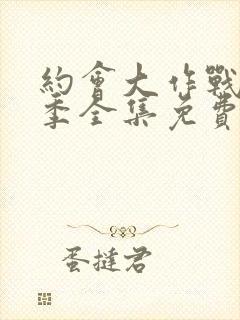 約會大作戰
季全集免費
蛋撻君